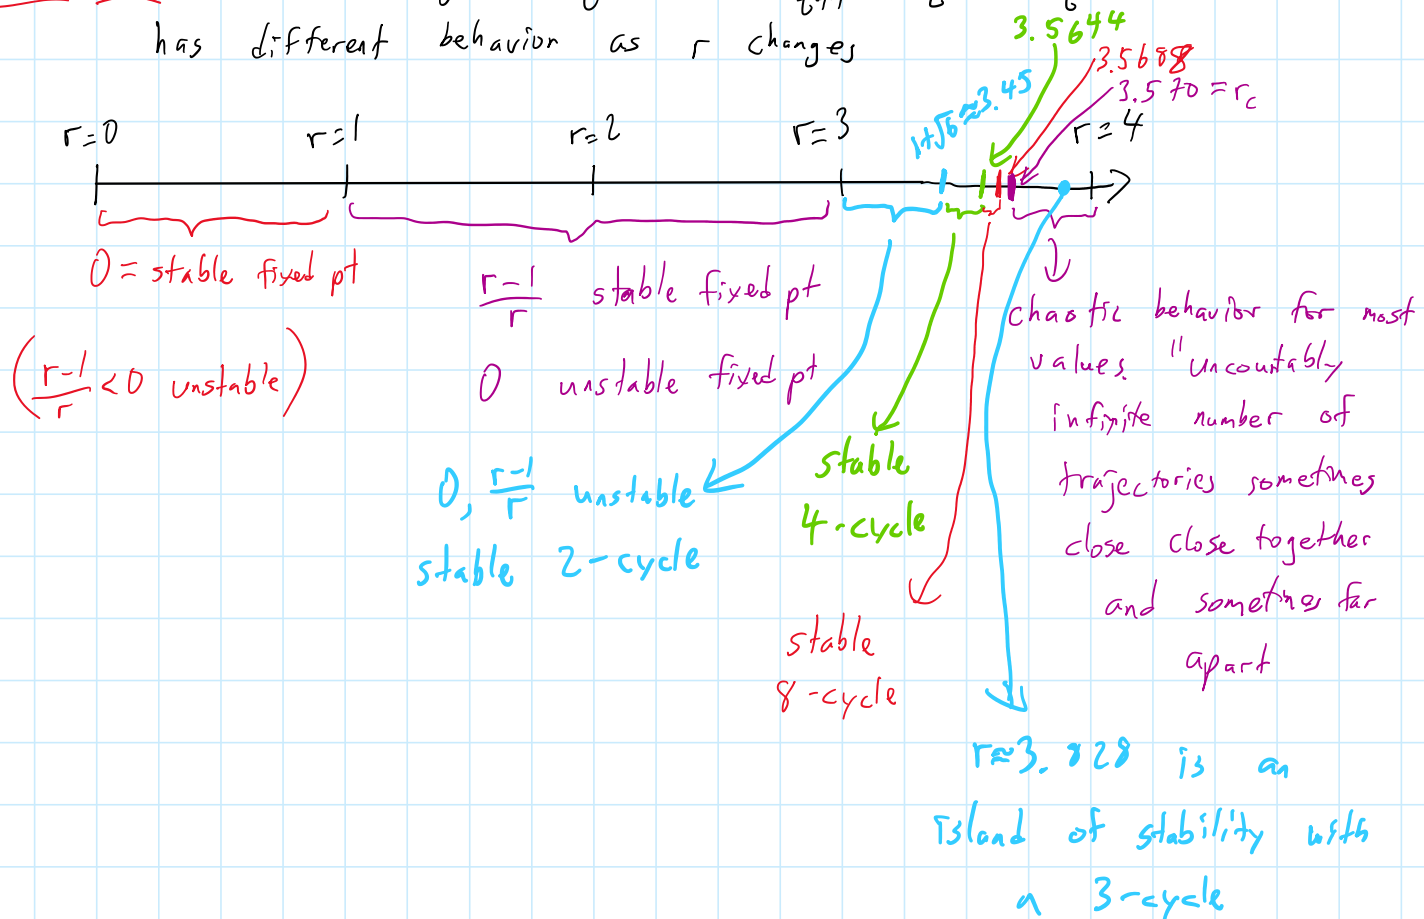 has different behavior as r changes
3.5644
3.5688
3.570 = r_c
1+√6≈3.45
r=0
r=1
r=2
r=3
r=4
0 = stable fixed pt
(r-1/r < 0 unstable)
r-1/r stable fixed pt
0 unstable fixed pt
0, r-1/r unstable
stable 2-cycle
stable
4-cycle
stable
8-cycle
chaotic behavior for most
values. "uncountably
infinite number of
trajectories sometimes
close close together
and sometimes far
apart
r≈3.828 is an
island of stability with
a 3-cycle